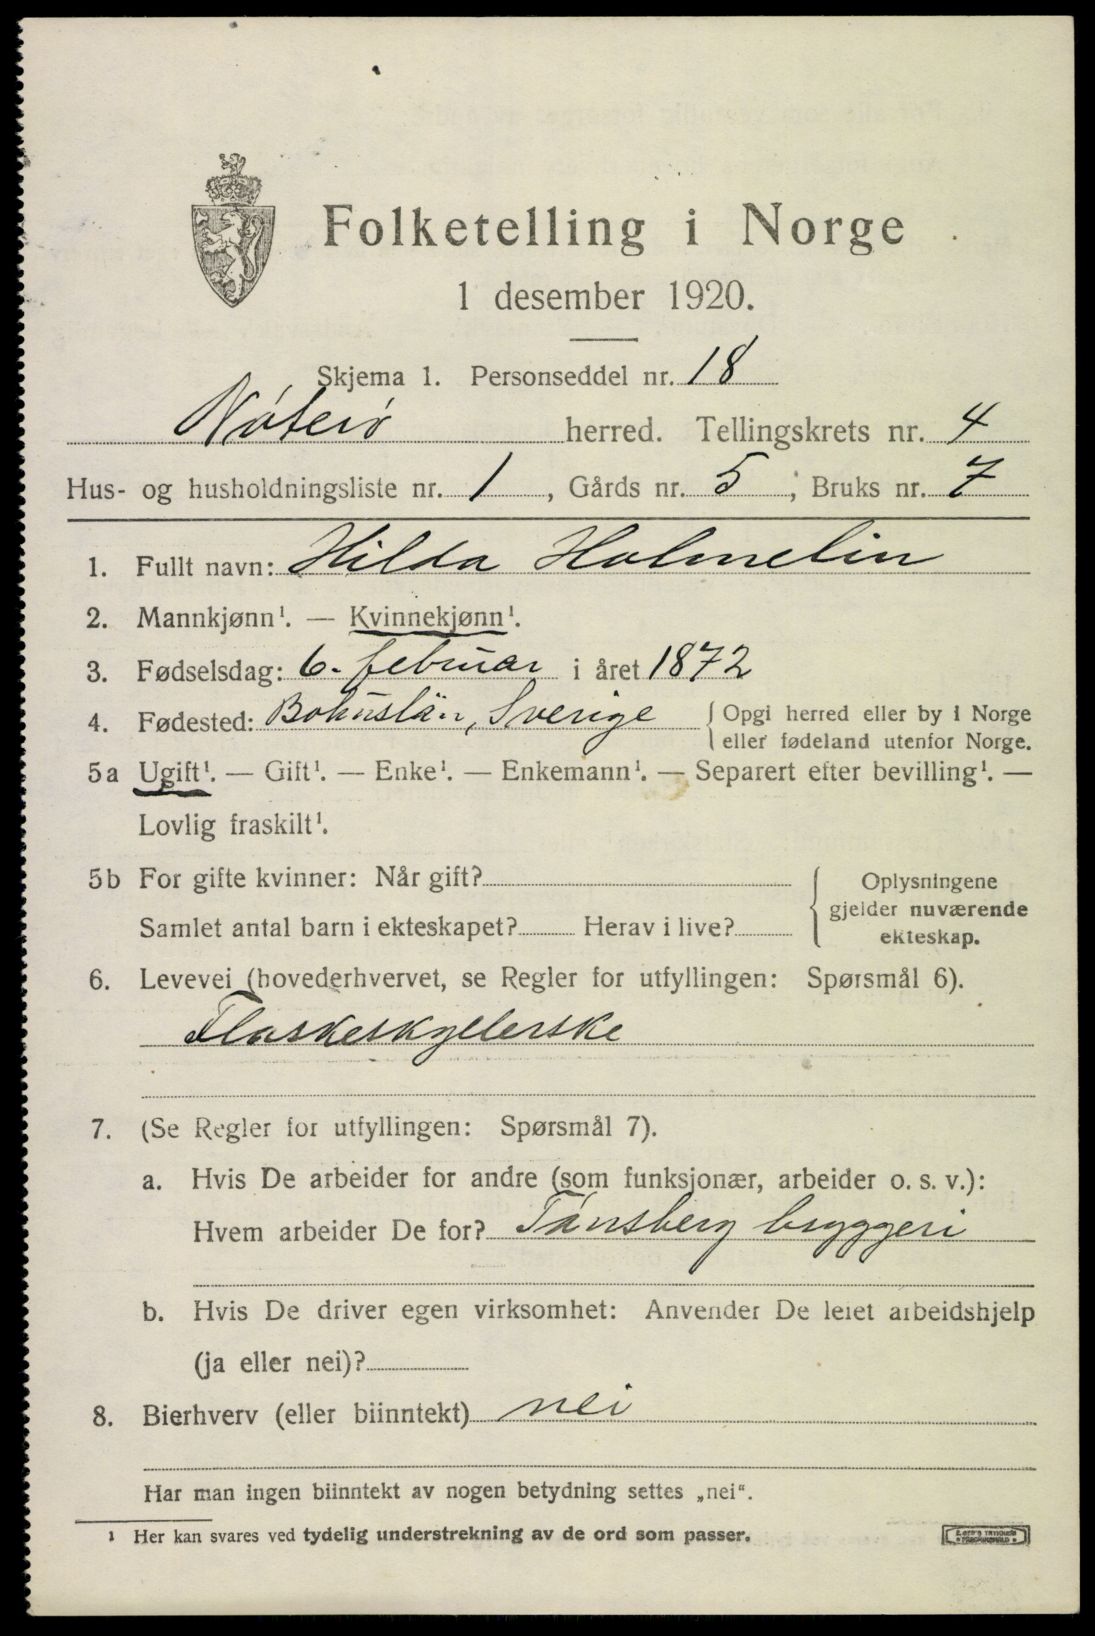 Folketelling i Norge
1 desember 1920.
Skjema 1. Personseddel nr. 18
Nøterø herred. Tellingskrets nr. 4
Hus- og husholdningsliste nr. 1, Gårds nr. 5, Bruks nr. 7
1. Fullt navn: Hilda Holmelin
2. Mannkjønn¹. — Kvinnekjønn¹.
3. Fødselsdag: 6. februar i året 1872
4. Fødested: Bohuslän, Sverige { Opgi herred eller by i Norge
eller fødeland utenfor Norge.
5a Ugift¹. — Gift¹. — Enke¹. — Enkemann¹. — Separert efter bevilling¹. —
Lovlig fraskilt¹.
5b For gifte kvinner: Når gift? { Oplysningene
gjelder nuværende
Samlet antal barn i ekteskapet? Herav i live? ekteskap.
6. Levevei (hovederhvervet, se Regler for utfyllingen: Spørsmål 6).
Flaskeskyllerske
7. (Se Regler for utfyllingen: Spørsmål 7).
a. Hvis De arbeider for andre (som funksjonær, arbeider o. s. v.):
Hvem arbeider De for? Tønsberg bryggeri
b. Hvis De driver egen virksomhet: Anvender De leiet arbeidshjelp
(ja eller nei)?
8. Bierhverv (eller biinntekt) nei
Har man ingen biinntekt av nogen betydning settes „nei“.
¹ Her kan svares ved tydelig understrekning av de ord som passer.